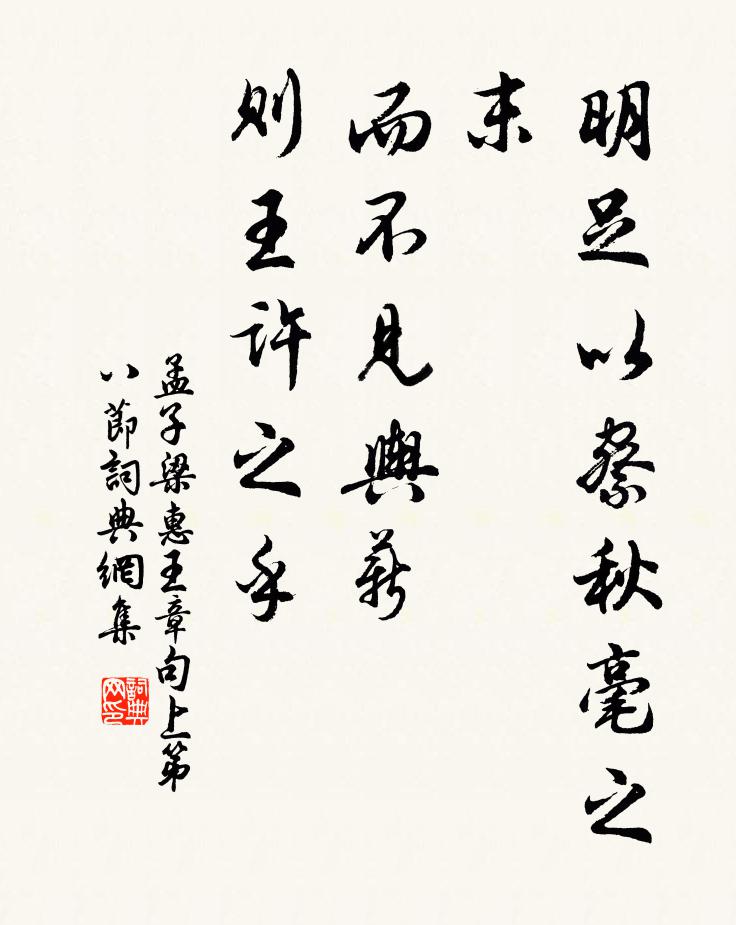 明足以察秋毫之
末
而不見輿薪
則王許之乎
孟子梁惠王章句上第
八節詞典網集
詞典网印